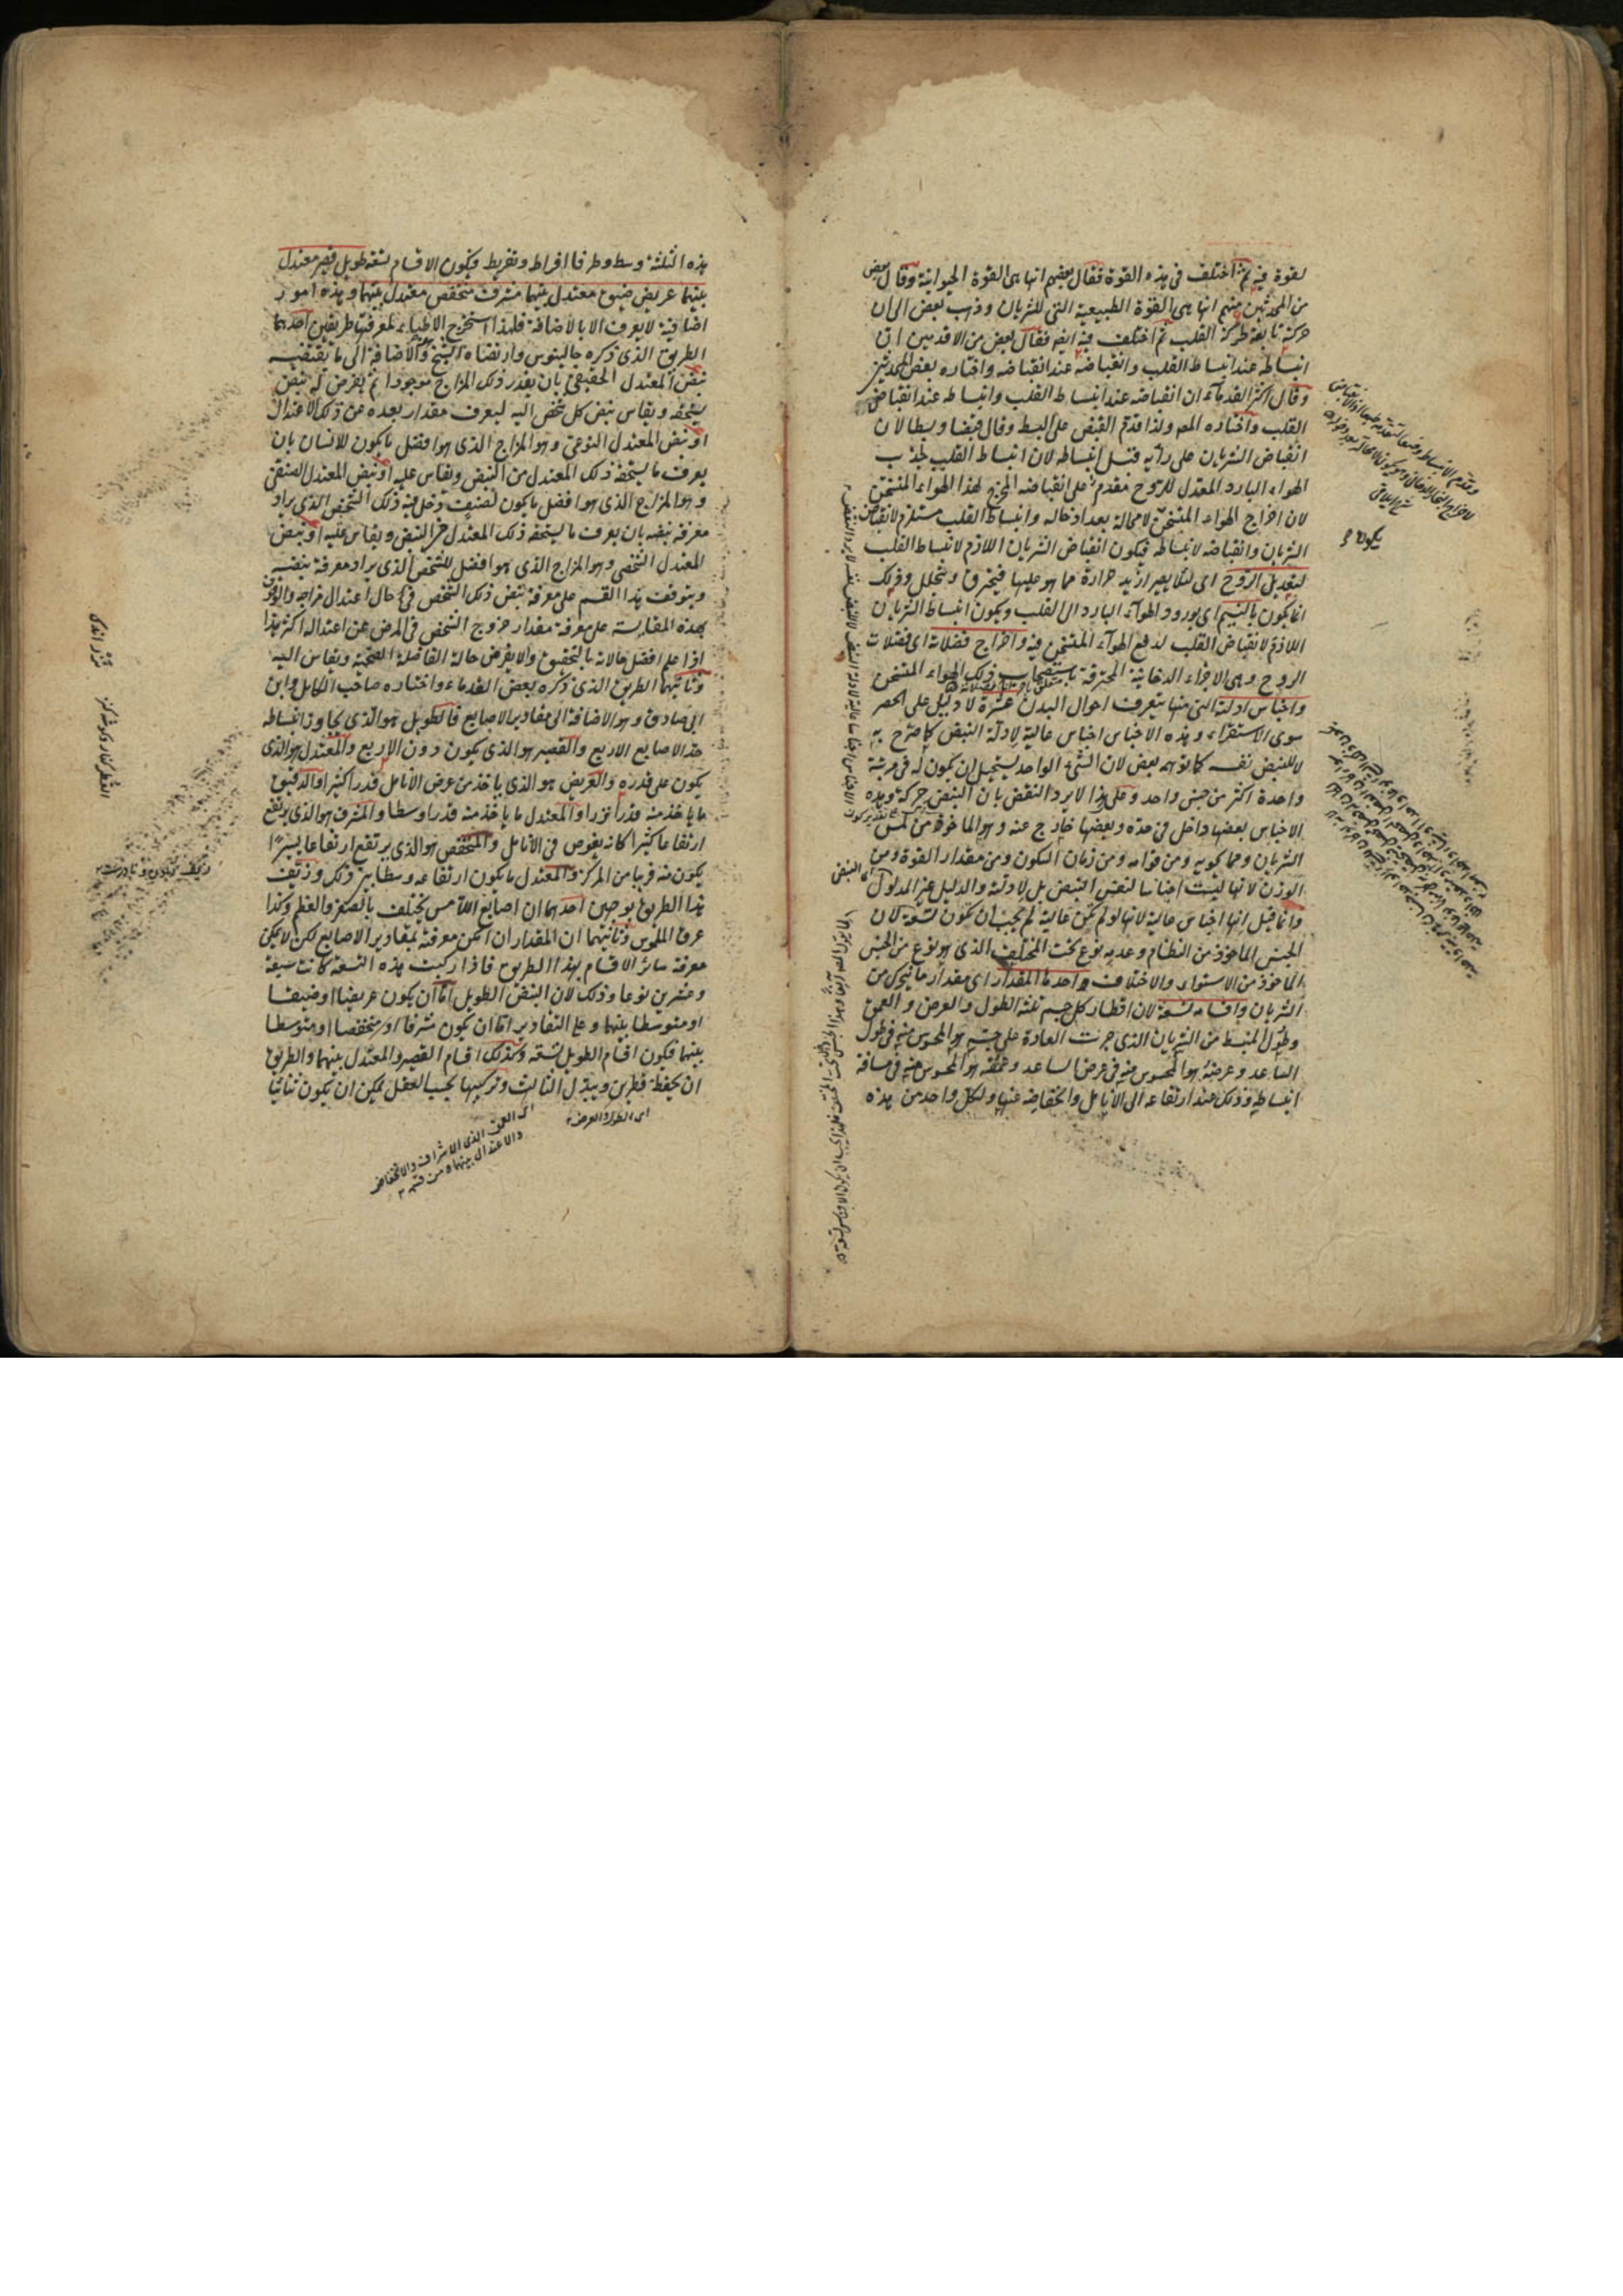 لقوة فيه ثم اختلف فى هذه القوة فقال بعضهم انها هى القوة الحيوانية وقال بعض
من المحدثين منهم انها هى القوة الطبيعية التى للشريان وذهب بعض الى ان
حركته تابعة لحركة القلب ثم اختلف فيه ايضا فقال بعض من الاقدمين ان
انبساطه عند انبساط القلب وانقباضه عند انقباضه واختاره بعض المحدثين
وقال اكثر القدماء ان انقباضه عند انبساط القلب وانبساطه عند انقباض
القلب واختاره المص ولذا قدم القبض على البسط وقال قبضا وبسطا لان
انقباض الشريان على رأيه قبل انبساطه لان انبساط القلب لجذب
الهواء البارد المعدل للروح مقدم على انقباضه المخرج لهذا الهواء المتسخن
لان اخراج الهواء المتسخن لا محالة بعد ادخاله وانبساط القلب مستلزم لانقباض
الشريان وانقباضه لانبساطه فيكون انقباض الشريان اللازم لانبساط القلب
لتعديل الروح اى لئلا يصير ازيد حرارة مما هو عليها فيحترق ويتحلل وذلك
انما يكون بالنسيم اى بورود الهواء البارد الى القلب ويكون انبساط الشريان
اللازم لانقباض القلب لدفع الهواء المتسخن فيه واخراج فضلاته اى فضلات
الروح وهى الاجزاء الدخانية المحترقة باستصحاب ذلك الهواء المتسخن
واجناس ادلته التى منها يتعرف احوال البدن عشرة لا دليل على الحصر
سوى الاستقراء وهذه الاجناس اجناس عالية لادلة النبض كما صرح به
لا للنبض نفسه كما توهمه بعض لان الشئ الواحد يستحيل ان يكون له فى مرتبة
واحدة اكثر من جنس واحد وعلى هذا لا يرد النقض بان النبض حركة وهذه
الاجناس بعضها داخل فى حده وبعضها خارج عنه وهو الماخوذ من لمس
الشريان ومما يحويه ومن قوامه ومن زمان السكون ومن مقدار القوة ومن
الوزن لانها ليست اجناسا لنفس النبض بل لادلته والدليل غير المدلول
وانما قيل انها اجناس عالية لانها لو لم تكن عالية لم يجب ان تكون تسعة لان
الجنس الماخوذ من النظام وعدمه نوع تحت المختلف الذى هو نوع من الجنس
الماخوذ من الاستواء والاختلاف واحدها المقدار اى مقدار ما يتحرك من
الشريان واقسامه تسعة لان اقطار كل جسم ثلثة الطول والعرض والعمق
وطول المنبسط من الشريان الذى جرت العادة على جسه هو المحسوس منه فى طول
الساعد وعرضه هو المحسوس منه فى عرض الساعد وعمقه هو المحسوس منه فى مسافة
انبساطه وذلك عند ارتفاعه الى الانامل وانخفاضه عنها ولكل واحد من هذه
هذه الثلثة وسط وطرفا افراط وتفريط فيكون الاقسام تسعة طويل قصير معتدل
بينهما عريض ضيق معتدل بينهما مشرف منخفض معتدل بينهما وهذه امور
اضافية لا يعرف الا بالاضافة فلهذا استخرج الاطباء لمعرفتها طريقين احدهما
الطريق الذى ذكره جالينوس وارتضاه الشيخ وهو الاضافة الى ما يقتضيه
نبض المعتدل الحقيقى بان يقدر ذلك المزاج موجودا ثم يفرض له نبض
يستحقه ويقاس نبض كل شخص اليه ليعرف مقدار بعده عن ذلك الاعتدال
او نبض المعتدل النوعى وهو المزاج الذى هو افضل ما يكون للانسان بان
يعرف ما يستحقه ذلك المعتدل من النبض ويقاس عليه او نبض المعتدل الصنفى
وهو المزاج الذى هو افضل ما يكون لصنف دخل فيه ذلك الشخص الذى يراد
معرفة نبضه بان يعرف ما يستحقه ذلك المعتدل من النبض ويقاس عليه او نبض
المعتدل الشخصى وهو المزاج الذى هو افضل للشخص الذى يراد معرفة نبضه
ويتوقف هذا القسم على معرفة نبض ذلك الشخص فى حال اعتدال مزاجه والوقوف
بهذه المقايسة على معرفة مقدار خروج الشخص فى المرض عن اعتداله اكثر هذا
اذا علم افضل حالاته بالتحقيق والا يفرض حالة الفاضلة الصحية ويقاس اليه
وثانيهما الطريق الذى ذكره بعض القدماء واختاره صاحب الكامل وابن
ابى صادق وهو الاضافة الى مقادير الاصابع فالطويل هو الذى يجاوز انبساطه
حد الاصابع الاربع والقصير هو الذى يكون دون الاربع والمعتدل هو الذى
يكون على قدره والعريض هو الذى ياخذ من عرض الانامل قدرا كثيرا والدقيق
ما ياخذ منه قدرا نزرا والمعتدل ما ياخذ منه قدرا وسطا والمشرف هو الذى يرتفع
ارتفاعا كثيرا كانه يغوص فى الانامل والمنخفض هو الذى يرتفع ارتفاعا يسيرا
يكون منه قريبا من المركز والمعتدل ما يكون ارتفاعه وسطا بين ذلك وزيف
هذا الطريق بوجهين احدهما ان اصابع اللامس يختلف بالصغر والعظم وكذا
عرق الملموس وثانيهما ان المقدار ان امكن معرفته بمقادير الاصابع لكن لا يمكن
معرفة سائر الاقسام بهذا الطريق فاذا ركبت هذه التسعة كانت سبعة
وعشرين نوعا وذلك لان النبض الطويل اما ان يكون عريضا او ضيقا
او متوسطا بينهما وعلى التقادير اما ان يكون مشرفا او منخفضا او متوسطا
بينهما فيكون اقسام الطويل تسعة وكذلك اقسام القصير والمعتدل بينهما والطريق
ان يحفظ قطرين ويبدل الثالث وتركيبها بحسب العقل يمكن ان يكون ثنائيا
اى الطول والعرض
اى العمق الذى الاشراف والانخفاض
والاعتدال بينهما